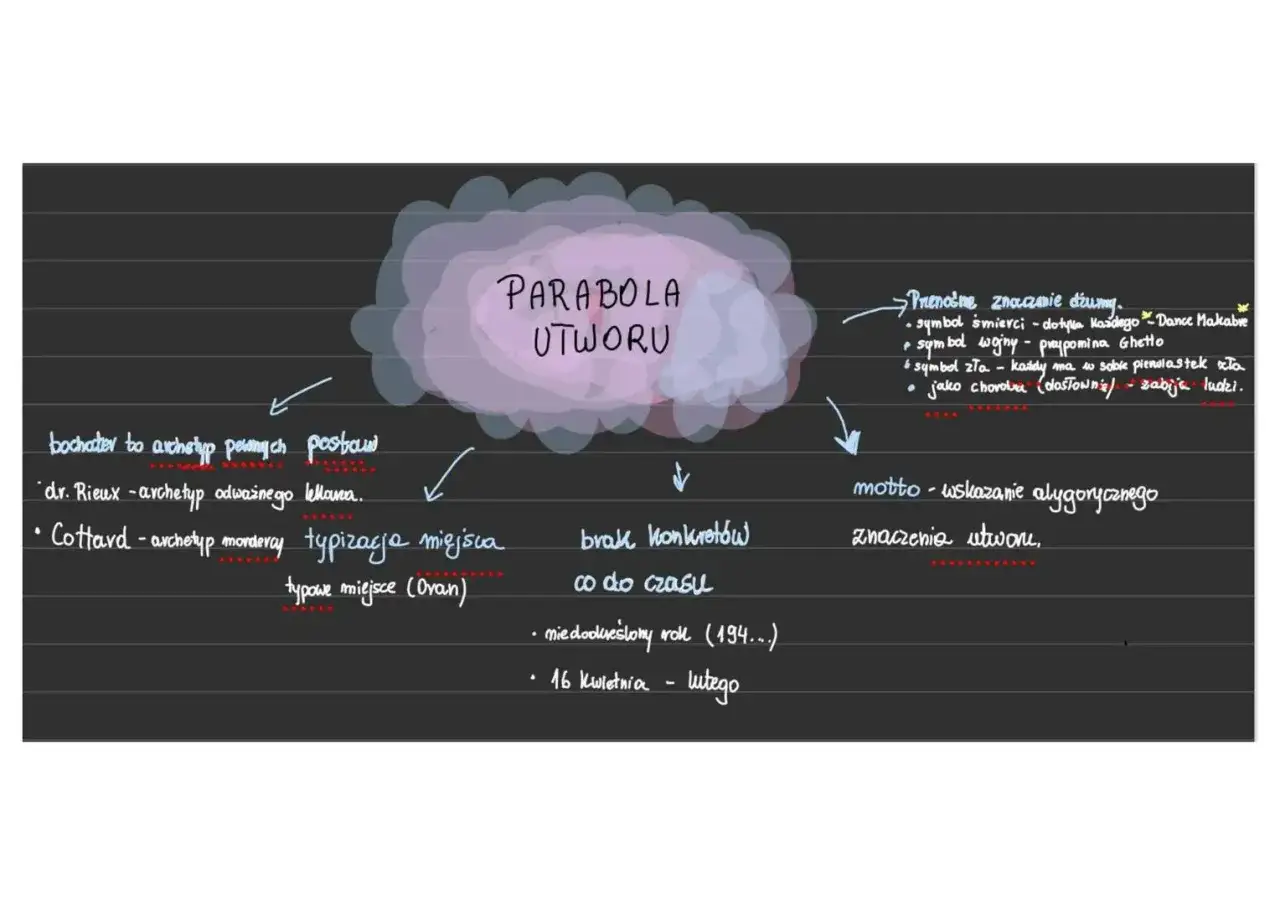 PARABOLA
UTWORU
Przenośne znaczenie dżumy.
• symbol śmierci - dotyka każdego * - Dance Makabre *
• symbol wojny - przypomina Ghetto
• symbol zła - każdy ma w sobie pierwiastek zła
• jako choroba (dosłowny) - zabija ludzi.
bochater to archetyp pewnych postaw
• dr. Rieux - archetyp odważnego lekarza.
• Cottard - archetyp mordercy
typizacja miejsca
typowe miejsce (Oran)
brak konkretów
co do czasu
• niedookreślony rok (194...)
• 16 kwietnia - lutego
motto - wskazanie alygorycznego
znaczenia utworu.